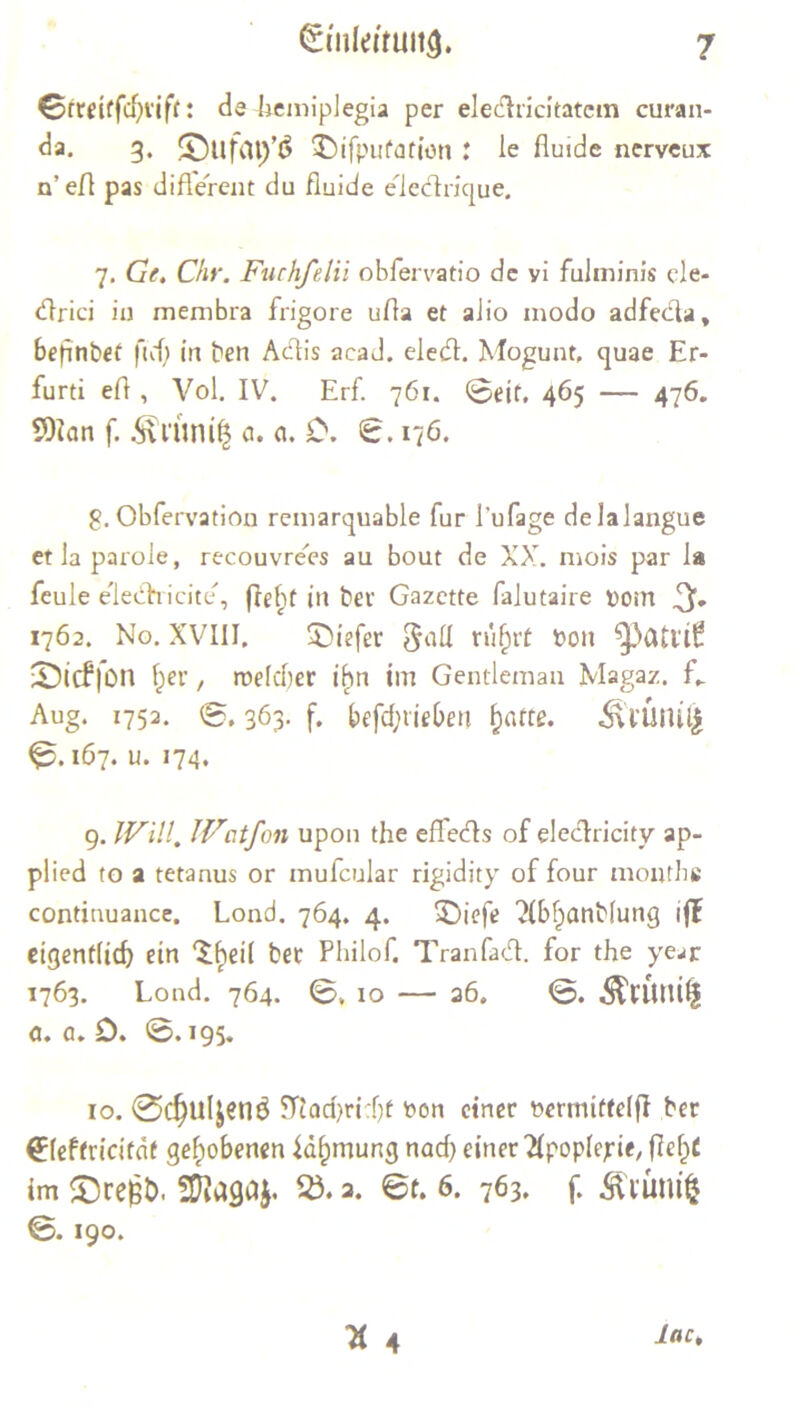 Einleitung. 7
Streitſchrift: de hemiplegia per electricitatem curan-
da. 3. Dufay's Diſputation: le fluide nerveux
n'eſt pas différent du fluide électrique.
7. Ge. Chr. Fuchſelii obſervatio de vi fulminis ele-
ctrici in membra frigore uſta et alio modo adfecta,
befindet ſich in den Actis acad. elect. Mogunt. quae Er-
furti eſt, Vol. IV. Erf. 761. Seit. 465 — 476.
Man ſ. Krünitz a. a. O. S. 176.
8. Obſervation remarquable ſur l'uſage de la langue
et la parole, recouvrées au bout de XX. mois par la
ſeule électricité, ſteht in der Gazette ſalutaire vom J.
1762. No. XVIII. Dieſer Fall rührt von Patrik
Dickſon her, welcher ihn im Gentleman Magaz. f.
Aug. 1752. S. 363. f. beſchrieben hatte. Krünitz
S. 167. u. 174.
9. Will. Watſon upon the effects of electricity ap-
plied to a tetanus or muſcular rigidity of four months
continuance. Lond. 764. 4. Dieſe Abhandlung iſt
eigentlich ein Theil der Philoſ. Tranſact. for the year
1763. Lond. 764. S. 10 — 26. S. Krünitz
a. a. O. S. 195.
10. Schulzens Nachricht von einer vermittelſt der
Elektricität gehobenen Lähmung nach einer Apoplexie, ſteht
im Dreßd. Magaz. B. 2. St. 6. 763. ſ. Krünitz
S. 190.
A 4 Iac.